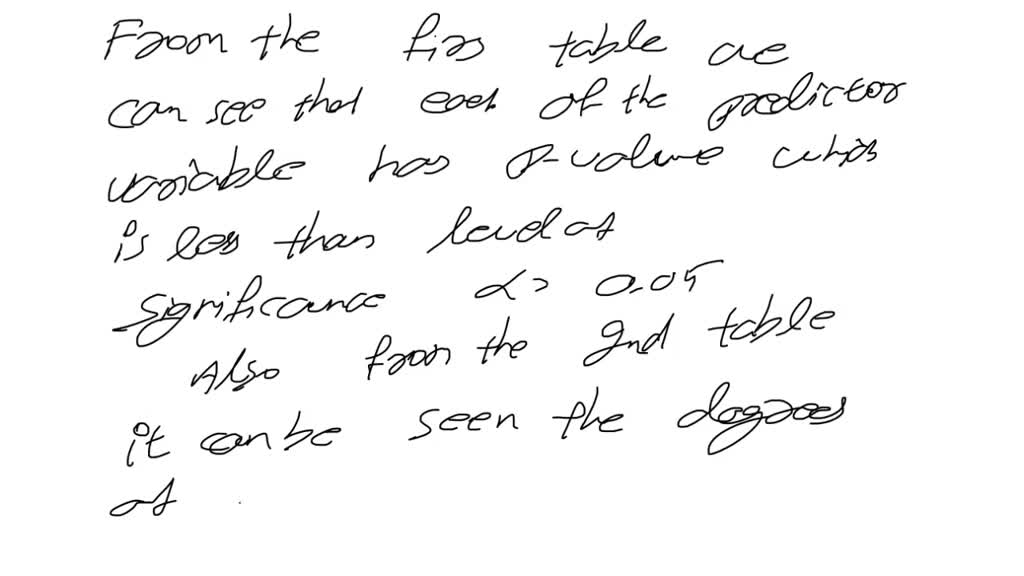 From the firs table we
can see that each of the predictor
variable has p-value which
is less than level of
significance α = 0.05
Also from the 2nd table
it can be seen the degrees
of